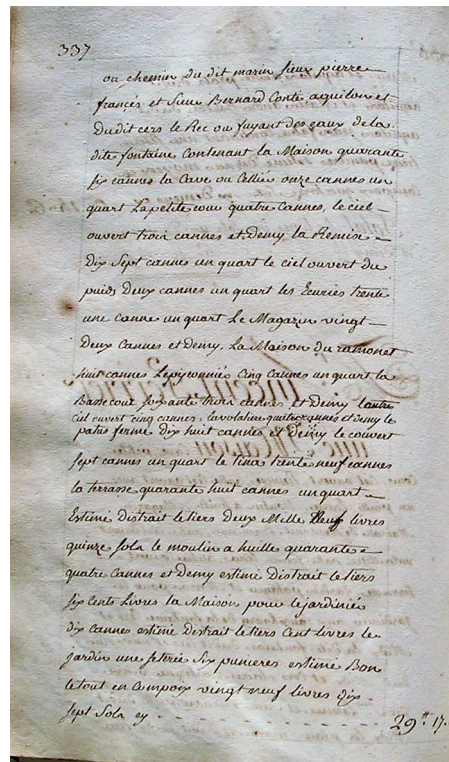 337
ou chemin du dit marin sieur pierre
francés et sieur Bernard Conte aquilon et
Dudit cers le Rec ou fuyant des eaux de la
dite fontaine Contenant la Maison quarante
six cannes la Cave ou Cellier onze cannes un
quart La petite cour quatre Cannes, le ciel
ouvert trois cannes et Demy la Remise
Dix Sept cannes un quart le ciel ouvert du
puids Deux cannes un quart les Ecuries trente
une canne un quart Le Magazin vingt
Deux Cannes et Demy, La Maison du ramonet
huit cannes Le pigeonnié Cinq Cannes un quart la
Basse cour soixante trois cannes et Demy Lautre
Ciel ouvert cinq cannes, la volaliere quatre cannes et demy le
patus fermé dix huit cannes et Demy le couvert
sept cannes un quart le tina trente neuf cannes
la terrasse quarante huit cannes un quart
Estimé distrait le tiers Deux Mille Neuf livres
quinze sols le moulin a huille quarante
quatre Cannes et Demy estimé Distrait le tiers
six Cents Livres la Maison pour le jardinié
dix cannes estimé distrait le tiers Cent livres le
jardin une seterée Six punieres estimé Bon
le tout en Compoix vingt neuf livres dix
sept Sols cy - - - - - - - - - - - - 29# 17.